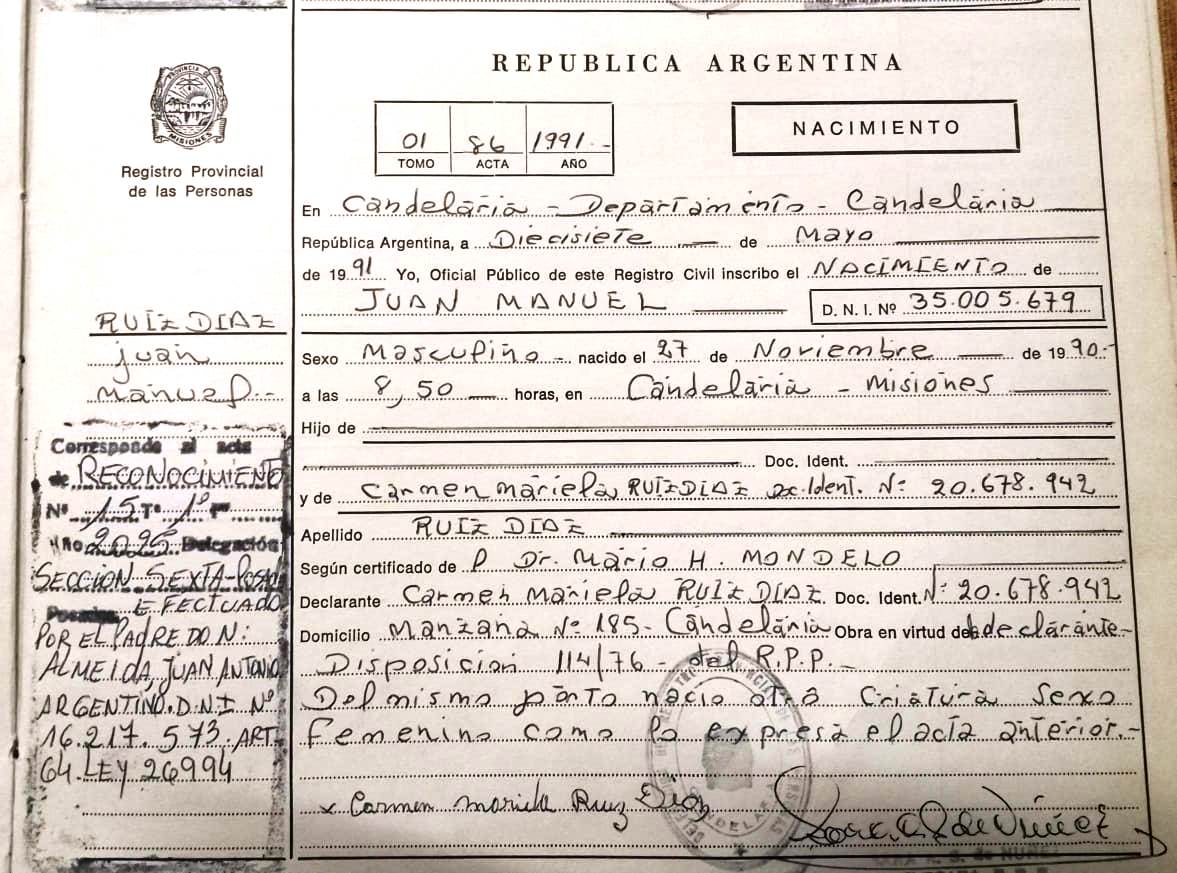 PROVINCIA DE
MISIONES
Registro Provincial
de las Personas
REPUBLICA ARGENTINA
01 86 1991.-
TOMO ACTA AÑO
NACIMIENTO
En Candelaria - Departamento - Candelaria
República Argentina, a Diecisiete de Mayo
de 1991 Yo, Oficial Público de este Registro Civil inscribo el NACIMIENTO de
JUAN MANUEL D. N. I. Nº 35.005.679
Sexo Masculino - nacido el 27 de Noviembre de 1990.-
a las 8,50 horas, en Candelaria - Misiones
Hijo de
Doc. Ident.
y de Carmen Mariela RUIZ DIAZ Doc. Ident. Nº 20.678.942
Apellido RUIZ DIAZ
Según certificado de P Dr. Mario H. MONDELO
Declarante Carmen Mariela RUIZ DIAZ Doc. Ident. Nº 20.678.942
Domicilio Manzana Nº 185 - Candelaria Obra en virtud de declarante-
Disposición 114/76 - del R.P.P.-
Del mismo parto nacio otra Criatura Sexo
Femenino como lo expresa el acta anterior.-
x Carmen Mariela Ruiz Diaz
RUIZ DIAZ
Juan
Manuel.-
Corresponde al acta
de RECONOCIMIENTO
Nº 15 Tº 1º
Año 2025 Delegación
SECCION SEXTA-
Posadas EFECTUADO
POR EL PADRE DON:
ALMEIDA, JUAN ANTONIO
ARGENTINO. D.N.I Nº
16.217.573. ART
64. LEY 26994